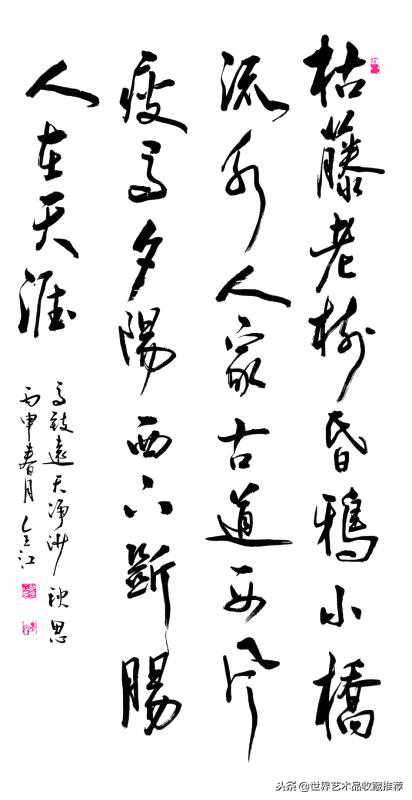 枯藤老樹昏鴉小橋
流水人家古道西風
瘦馬夕陽西下斷腸
人在天涯
馬致遠天净沙秋思
丙申春月江
头条 @世界艺术品收藏推荐